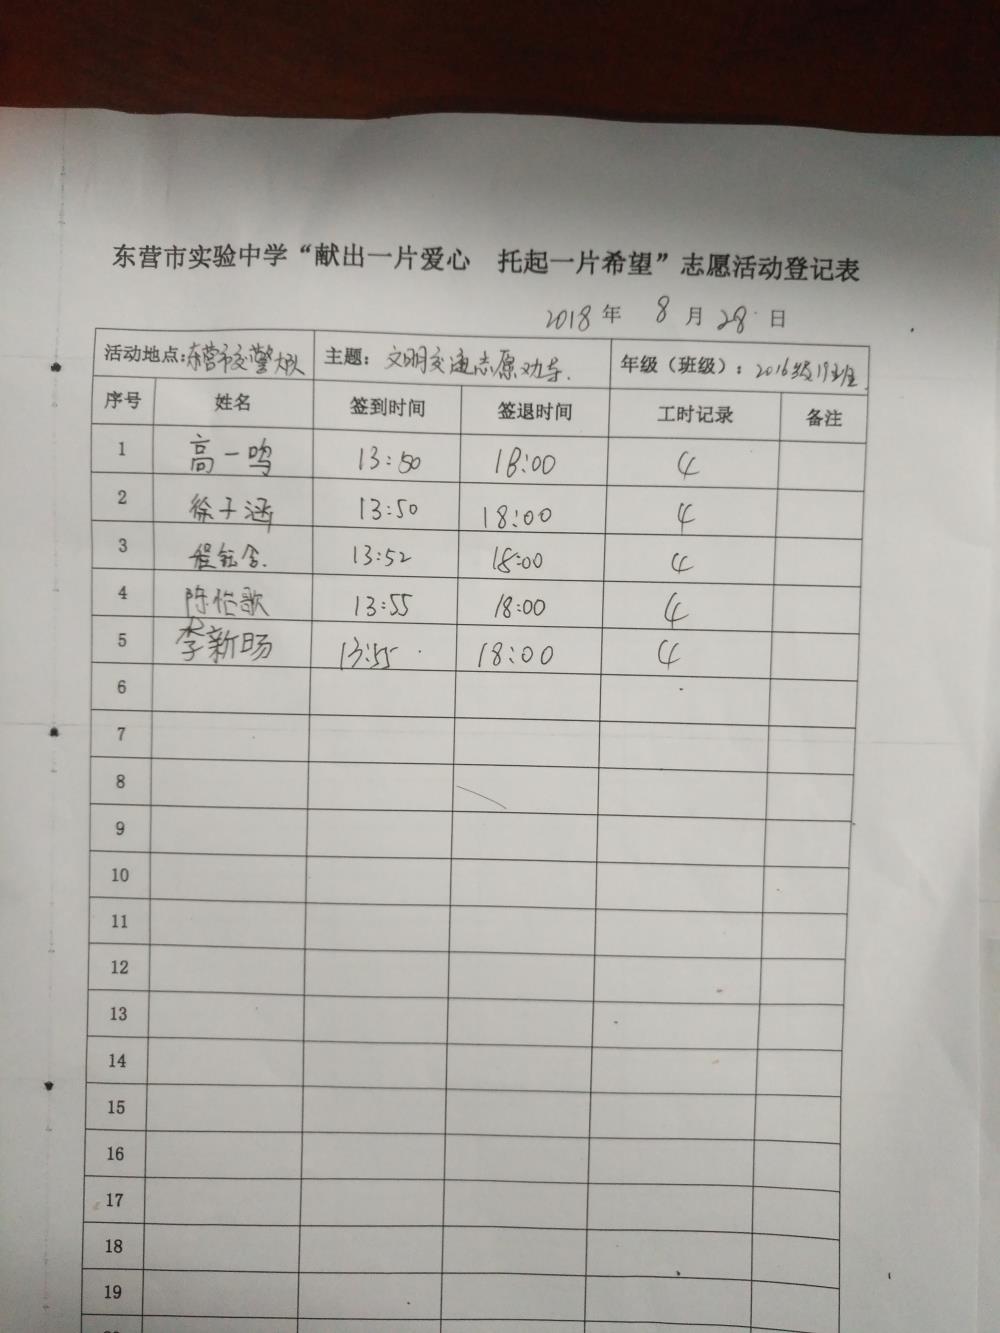 东营市实验中学“献出一片爱心 托起一片希望”志愿活动登记表
2018年 8月28日
活动地点:东营市交警大队 主题:文明交通志愿劝导. 年级(班级):2016级19班
序号 姓名 签到时间 签退时间 工时记录 备注
1 高一鸣 13:50 18:00 4
2 徐子涵 13:50 18:00 4
3 程钰 13:52 18:00 4
4 陈怡歌 13:55 18:00 4
5 李新旸 13:55 18:00 4
6
7
8
9
10
11
12
13
14
15
16
17
18
19